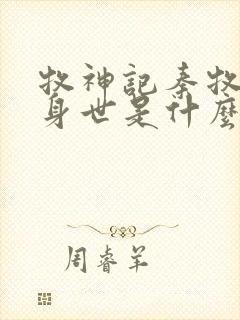 牧神記秦牧
身世是什麼
周睿羊